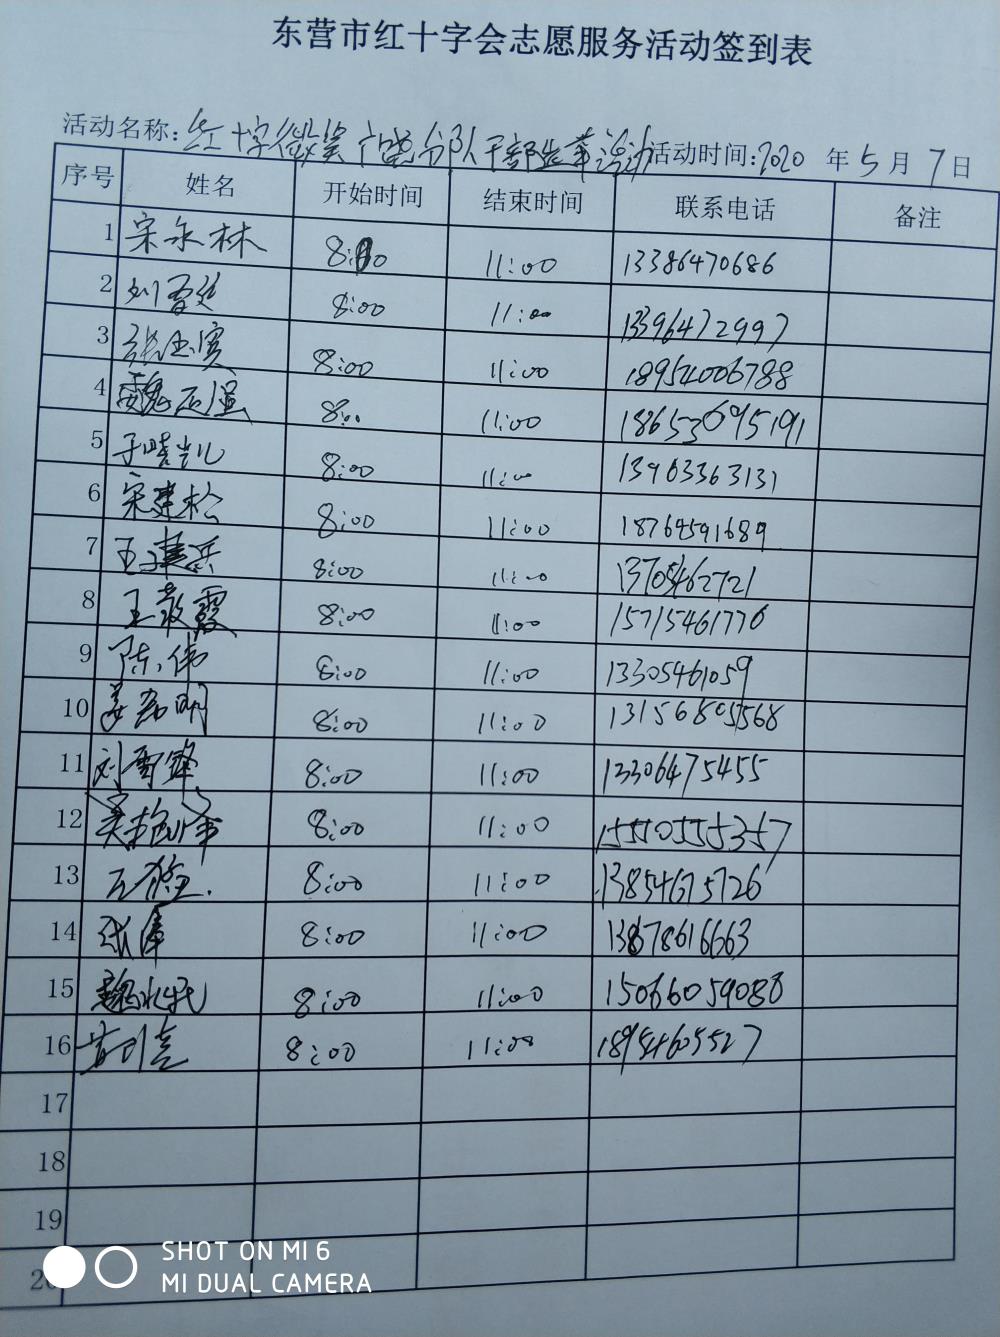 东营市红十字会志愿服务活动签到表
活动名称: 红十字微 分队干部 活动时间: 2020 年 5 月 7 日
序号 姓名 开始时间 结束时间 联系电话 备注
1 宋永林 8:00 11:00 13386470686
2 刘 8:00 11:00 13396472997
3 张玉宾 8:00 11:00 18954006788
4 魏 8:00 11:00
5 于晓凯 8:00 11:00 13963363131
6 宋建松 8:00 11:00 18764591689
7 王建兵 8:00 11:00 13705462721
8 王敬霞 8:00 11:00 15715461776
9 陈伟 8:00 11:00 13305461059
10 姜 明 8:00 11:00 13156805568
11 刘雪锋 8:00 11:00 13306475455
12 8:00 11:00 15510555357
13 王 8:00 11:00 13854675726
14 张 8:00 11:00 13678616663
15 魏 8:00 11:00 15066059086
16 8:00 11:00 18954605527
17
18
19
20
SHOT ON MI 6
MI DUAL CAMERA